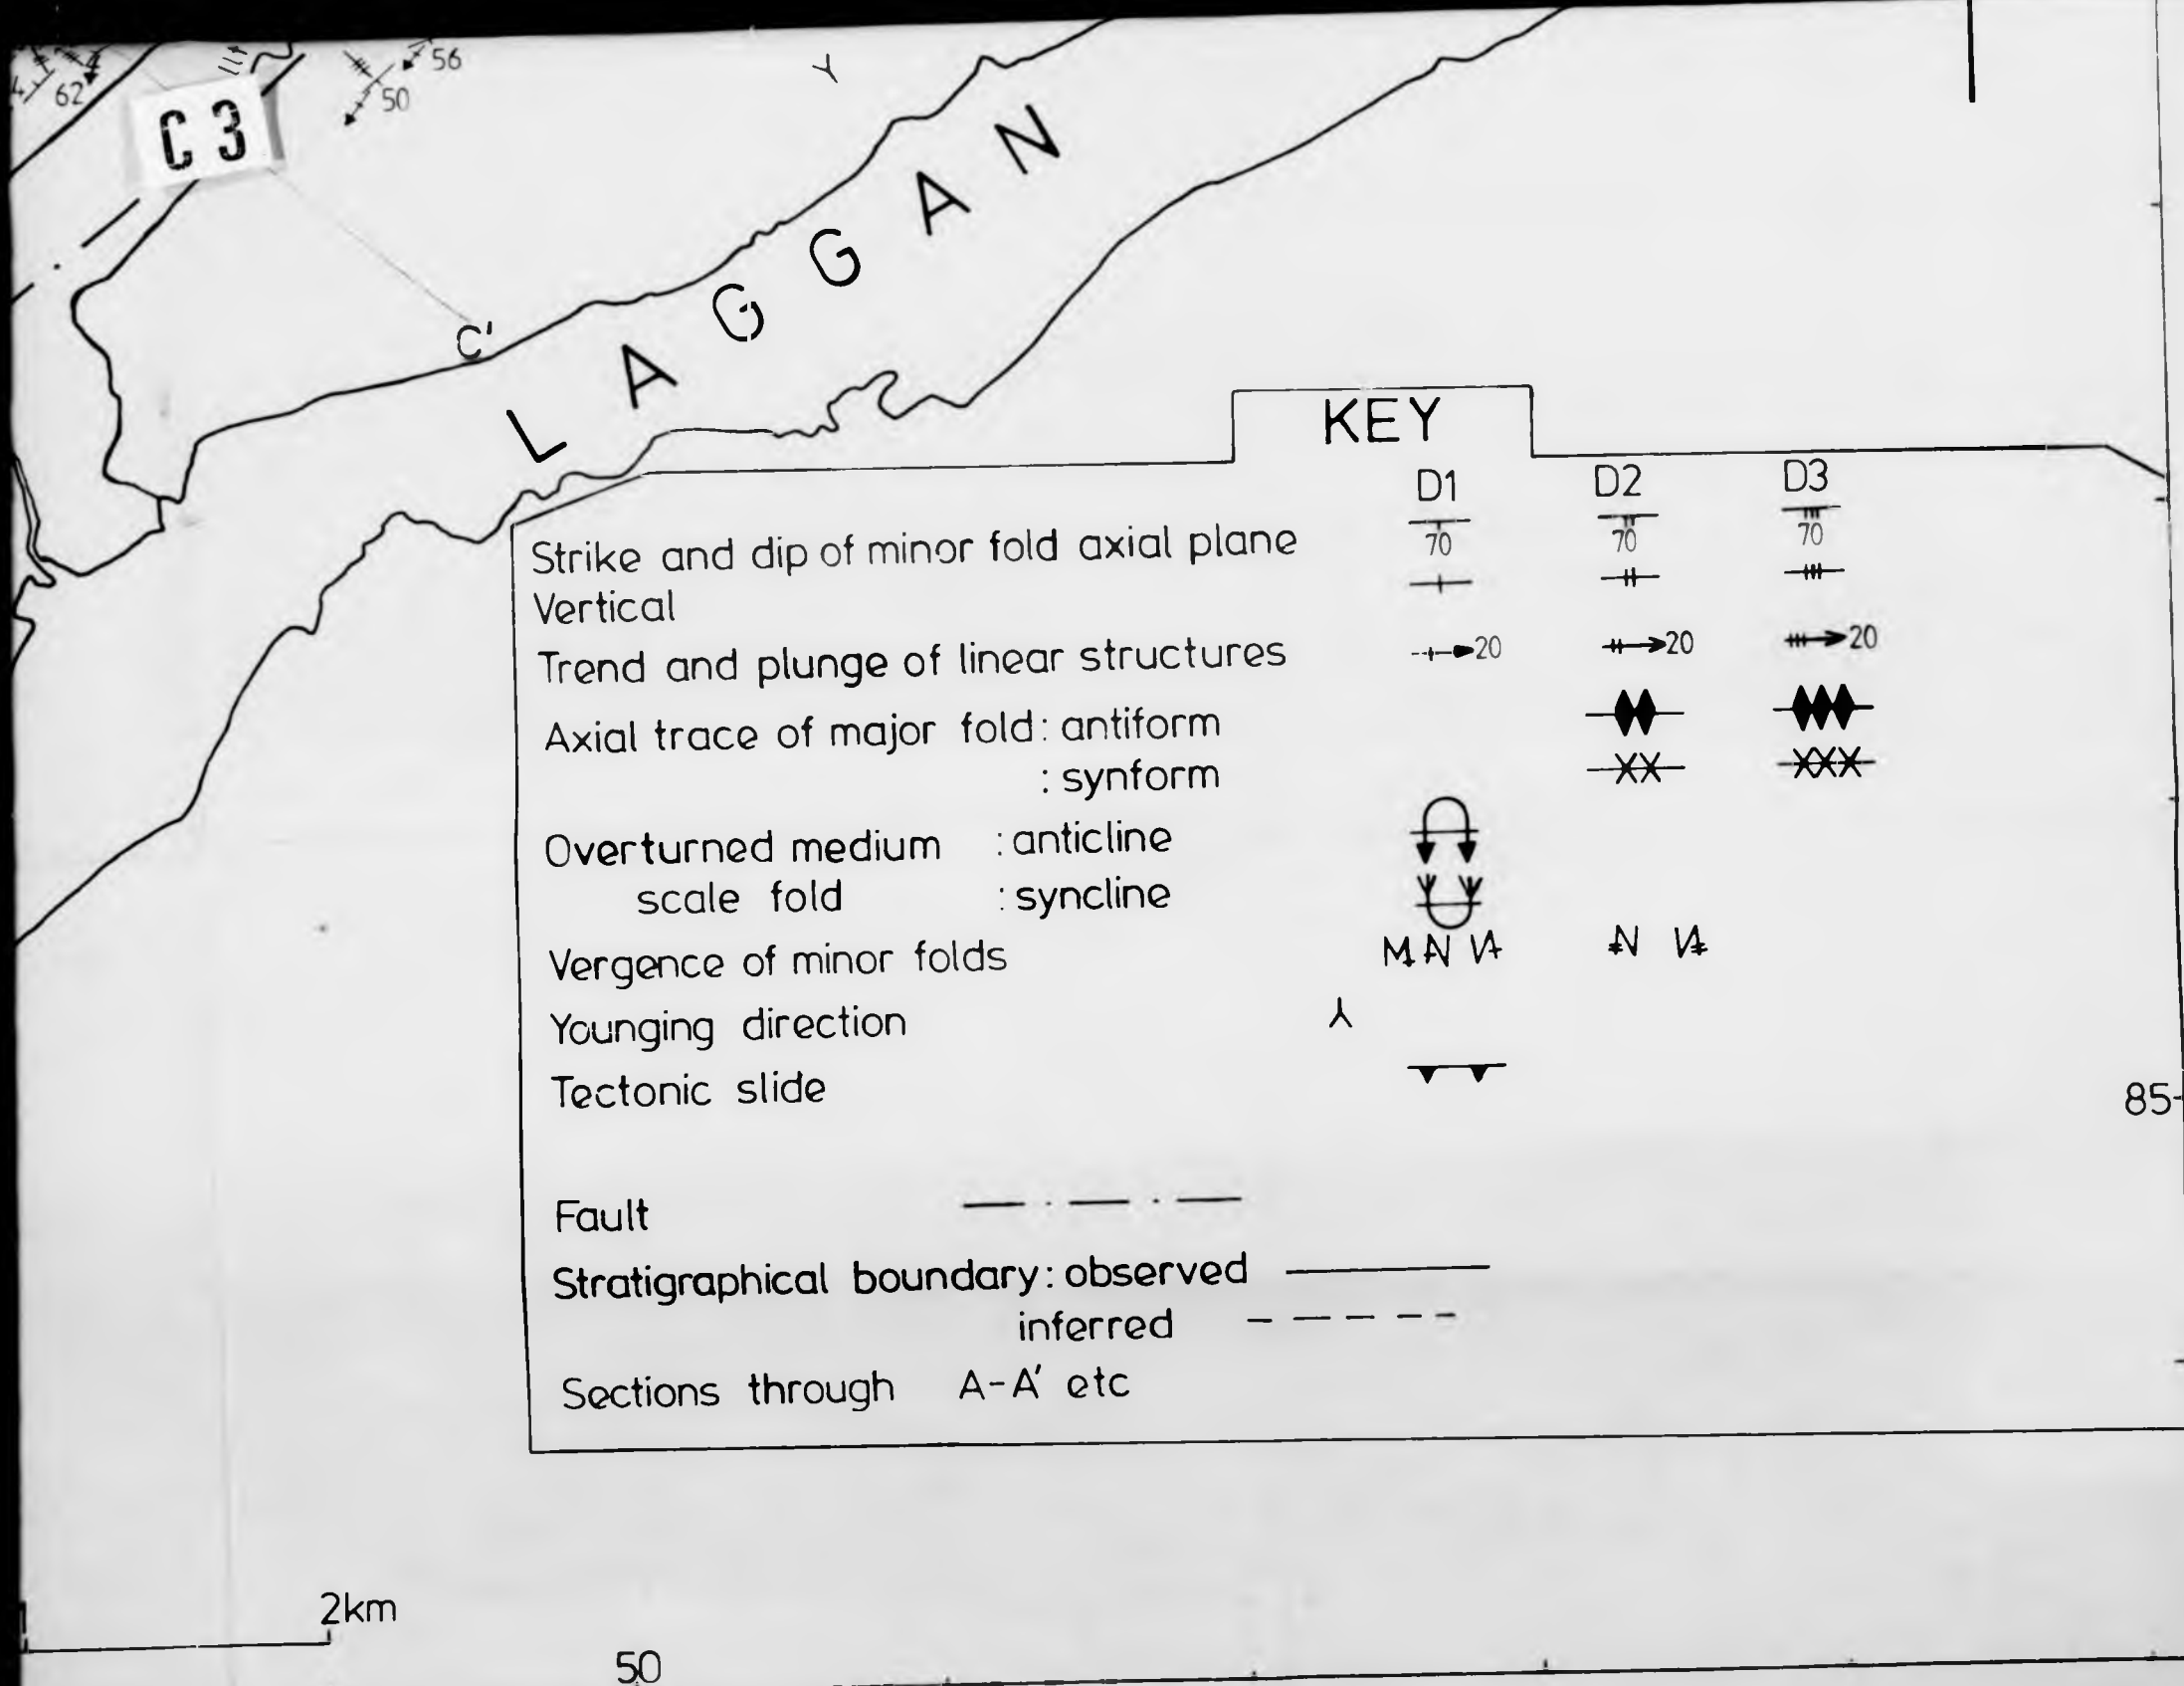 56
62
50
C 3
LAGGAN
C'
KEY
D1 D2 D3
Strike and dip of minor fold axial plane 70 70 70
Vertical
Trend and plunge of linear structures 20 20 20
Axial trace of major fold: antiform
: synform
Overturned medium : anticline
scale fold : syncline
Vergence of minor folds M N N N
Younging direction
Tectonic slide
85
Fault
Stratigraphical boundary: observed
inferred
Sections through A-A' etc
2km
50